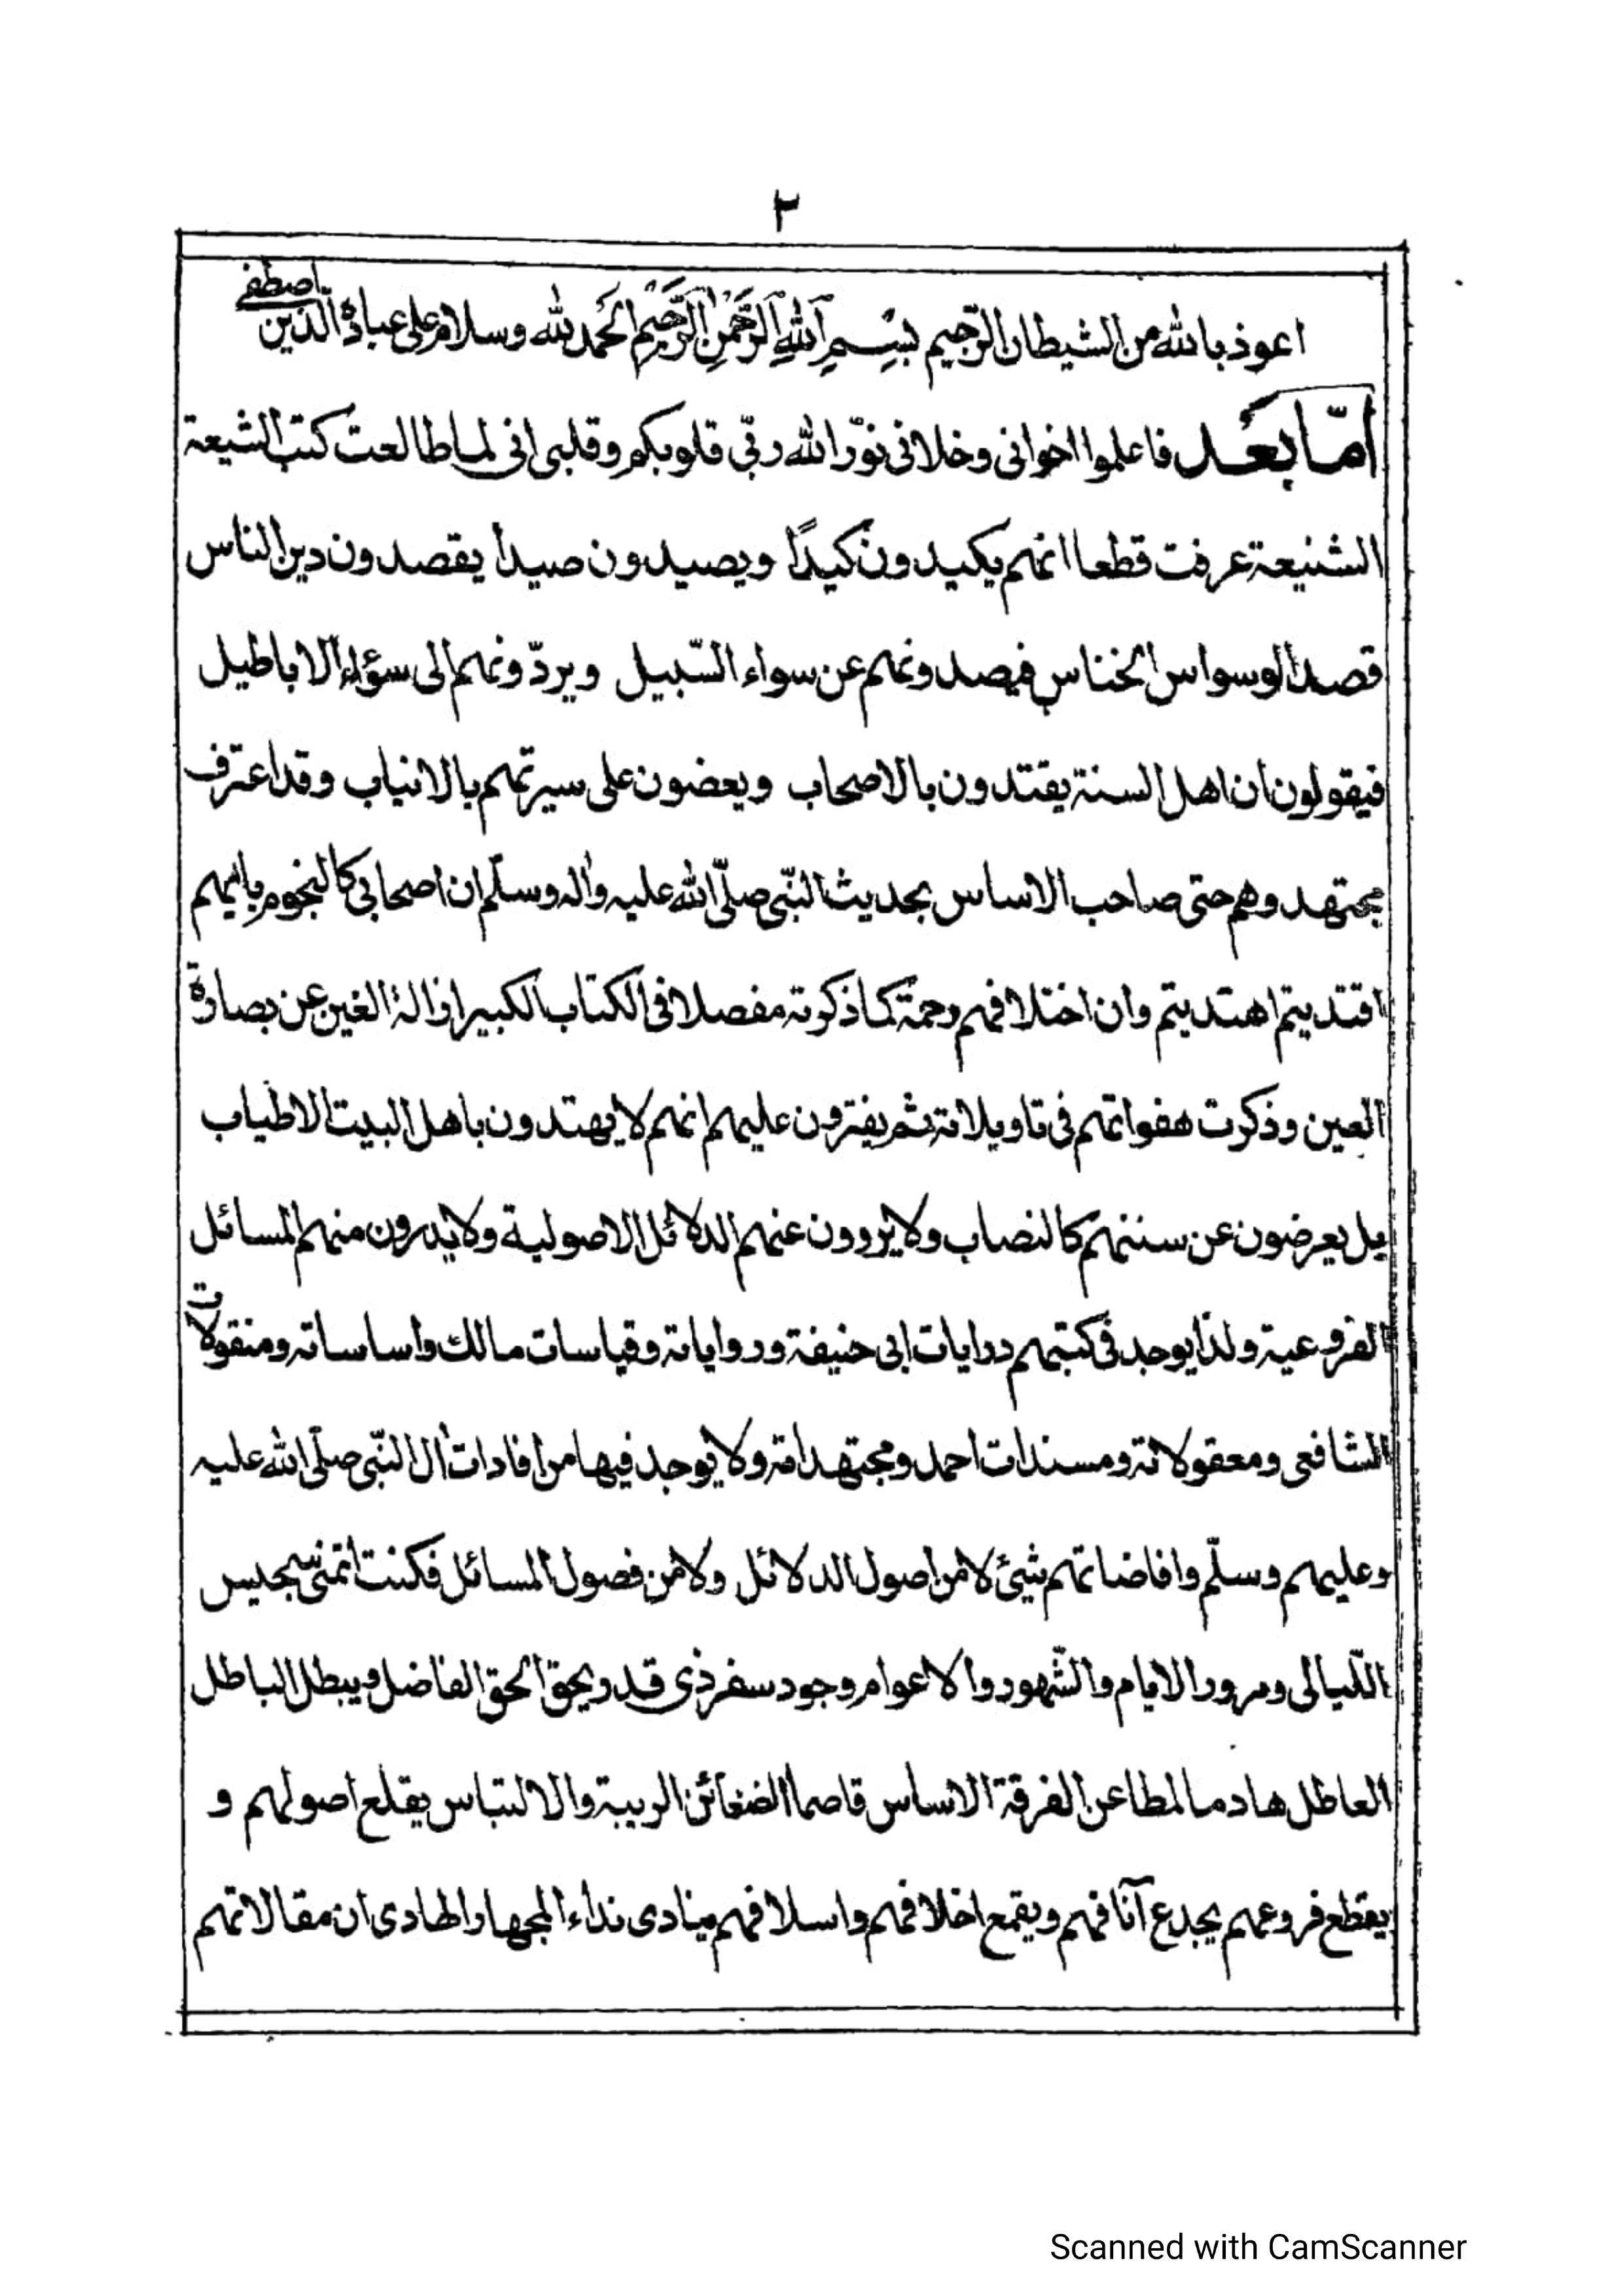 ٢
اعوذ بالله من الشيطان الرّجيم بِسْمِ اللهِ الرَّحْمٰنِ الرَّحِيْمِ الحَمد لله وسلام على عباده الّذين اصطفى
امّا بعد فاعلموا اخوانى وخلانى نوّر الله ربّى قلوبكم وقلبى انى لما طالعت كتب الشيعة
الشنيعة عرفت قطعا انهم يكيدون كيدًا ويصيدون صيدا يقصدون دين الناس
قصد الوسواس الخناس فيصدونهم عن سواء السّبيل ويردّونهم الى سؤاء الاباطيل
فيقولون ان اهل السنة يقتدون بالاصحاب ويعضون على سيرتهم بالانياب وقد اعترف
مجتهدوهم حتى صاحب الاساس بحديث النبّى صلّى الله عليه واله وسلّم ان اصحابى كالنجوم بايهم
اقتديتم اهتديتم وان اختلافهم رحمة كما ذكرته مفصلا فى الكتاب الكبير ازالة الغين عن بصارة
العين وذكرت هفواتهم فى تاويلاته ثم يفترون عليهم انهم لا يهتدون باهل البيت الاطياب
بل يعرضون عن سننهم كالنصاب ولا يروون عنهم الدلائل الاصولية ولا يدرون منهم المسائل
الفروعية ولذا يوجد فى كتبهم درايات ابى حنيفة ورواياته وقياسات مالك واساساته ومنقولات
الشافعى ومعقولاته ومسندات احمد ومجتهداته ولا يوجد فيها من افادات ال النبّى صلّى الله عليه
وعليهم وسلّم وافاضاتهم شئ لا من اصول الدلائل ولا من فصول المسائل فكنت اتمنى سجيس
اللّيالى ومرور الايام والشّهور والاعوام وجود سفر ذى قدر يحق الحق الفاضل ويبطل الباطل
العاطل هادما لمطاعن الفرقة الاساس قاصما لضغائن الريبة والالتباس يقلع اصولهم و
يقطع فروعهم يجدع آنافهم ويقمع اخلافهم واسلافهم ينادى نداء الجهار الهادى ان مقالاتهم
Scanned with CamScanner